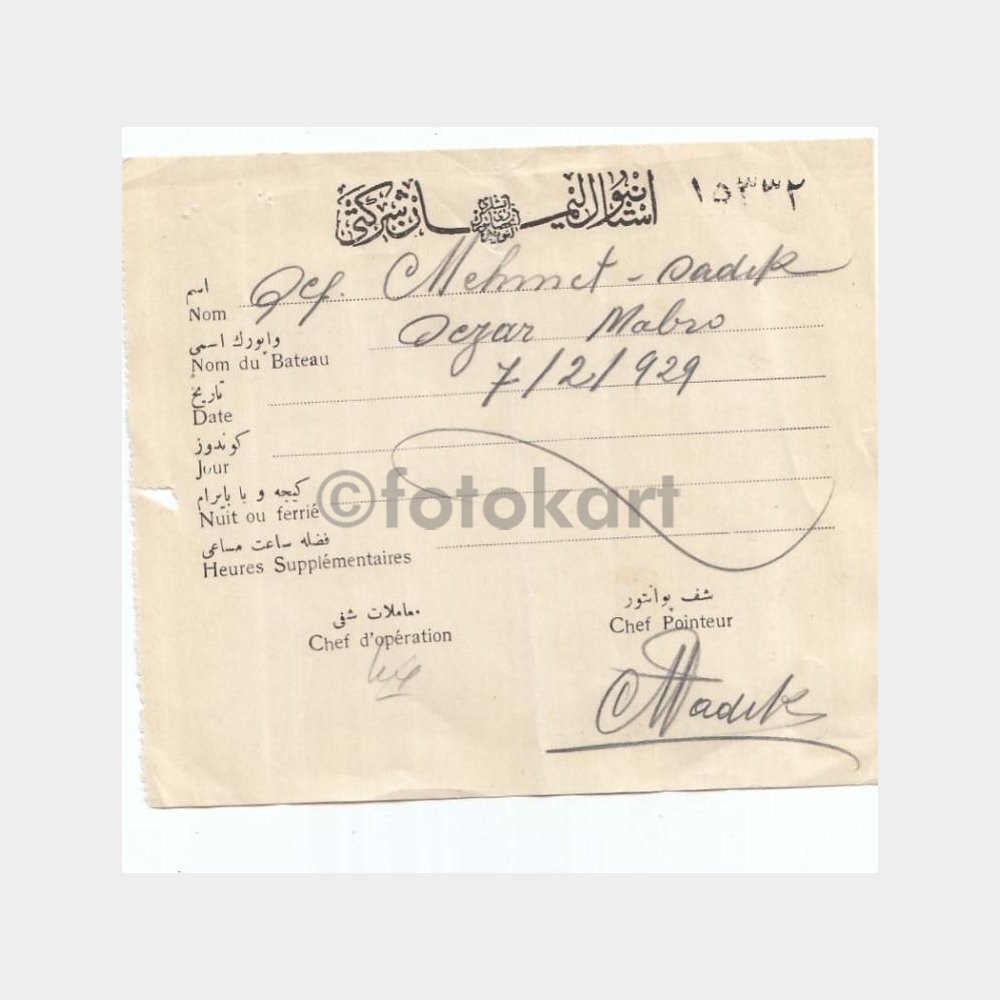 استانبول لیمان شركتی ١٥٣٣٢
اسم
Nom Şef. Mehmet - Sadık
واپورك اسمی
Nom du Bateau Sezar Mabro
تاریخ
Date 7/2/929
كوندوز
Jour
كیجه و یا بایرام
Nuit ou ferrié
فضله ساعت مساعی
Heures Supplémentaires
©fotokart
معاملات شفی
Chef d'opération
شف پوانتور
Chef Pointeur
MSadık